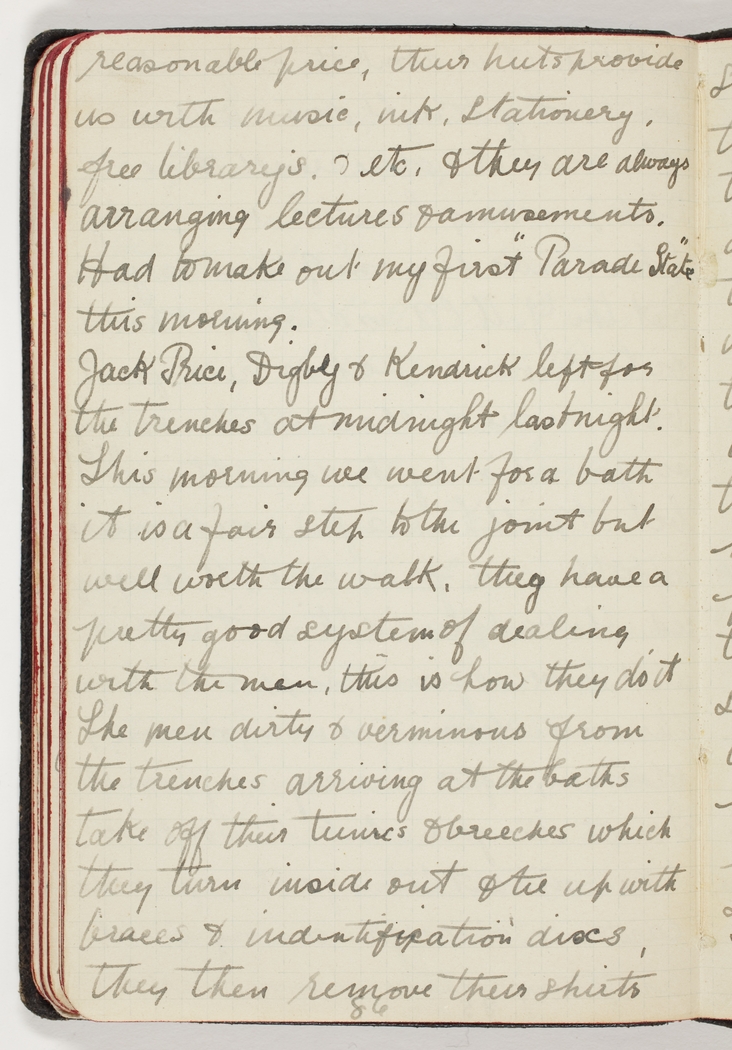 reasonable price, their huts provide
us with music, ink, stationery,
free library's. etc. & they are always
arranging lectures & amusements.
Had to make out my first "Parade State"
this morning.
Jack Price, Digby & Kendrick left for
the trenches at midnight last night.
This morning we went for a bath
it is a fair step to the joint but
well worth the walk, they have a
pretty good system of dealing
with the men, this is how they do it
The men dirty & verminous from
the trenches arriving at the baths
take off their tunics & breeches which
they turn inside out & tie up with
braces & indentification discs,
they then remove their shirts
86